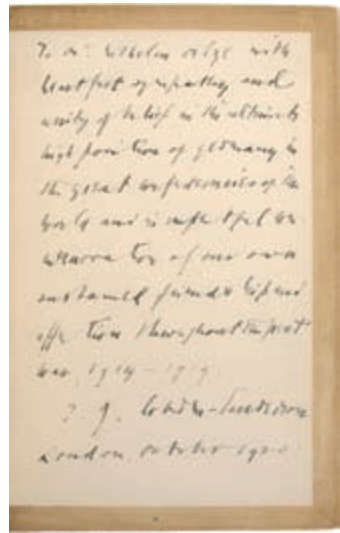 To Mr. Wilhelm with
heartfelt sympathy and
unity of belief in the ultimate
high position of germany in
the great confederancies of the
world and in
of our own
sustained friendship and
affection throughout the great
war. 1914 – 1919.
T. J. Cobden-Sanderson
London. October 1920